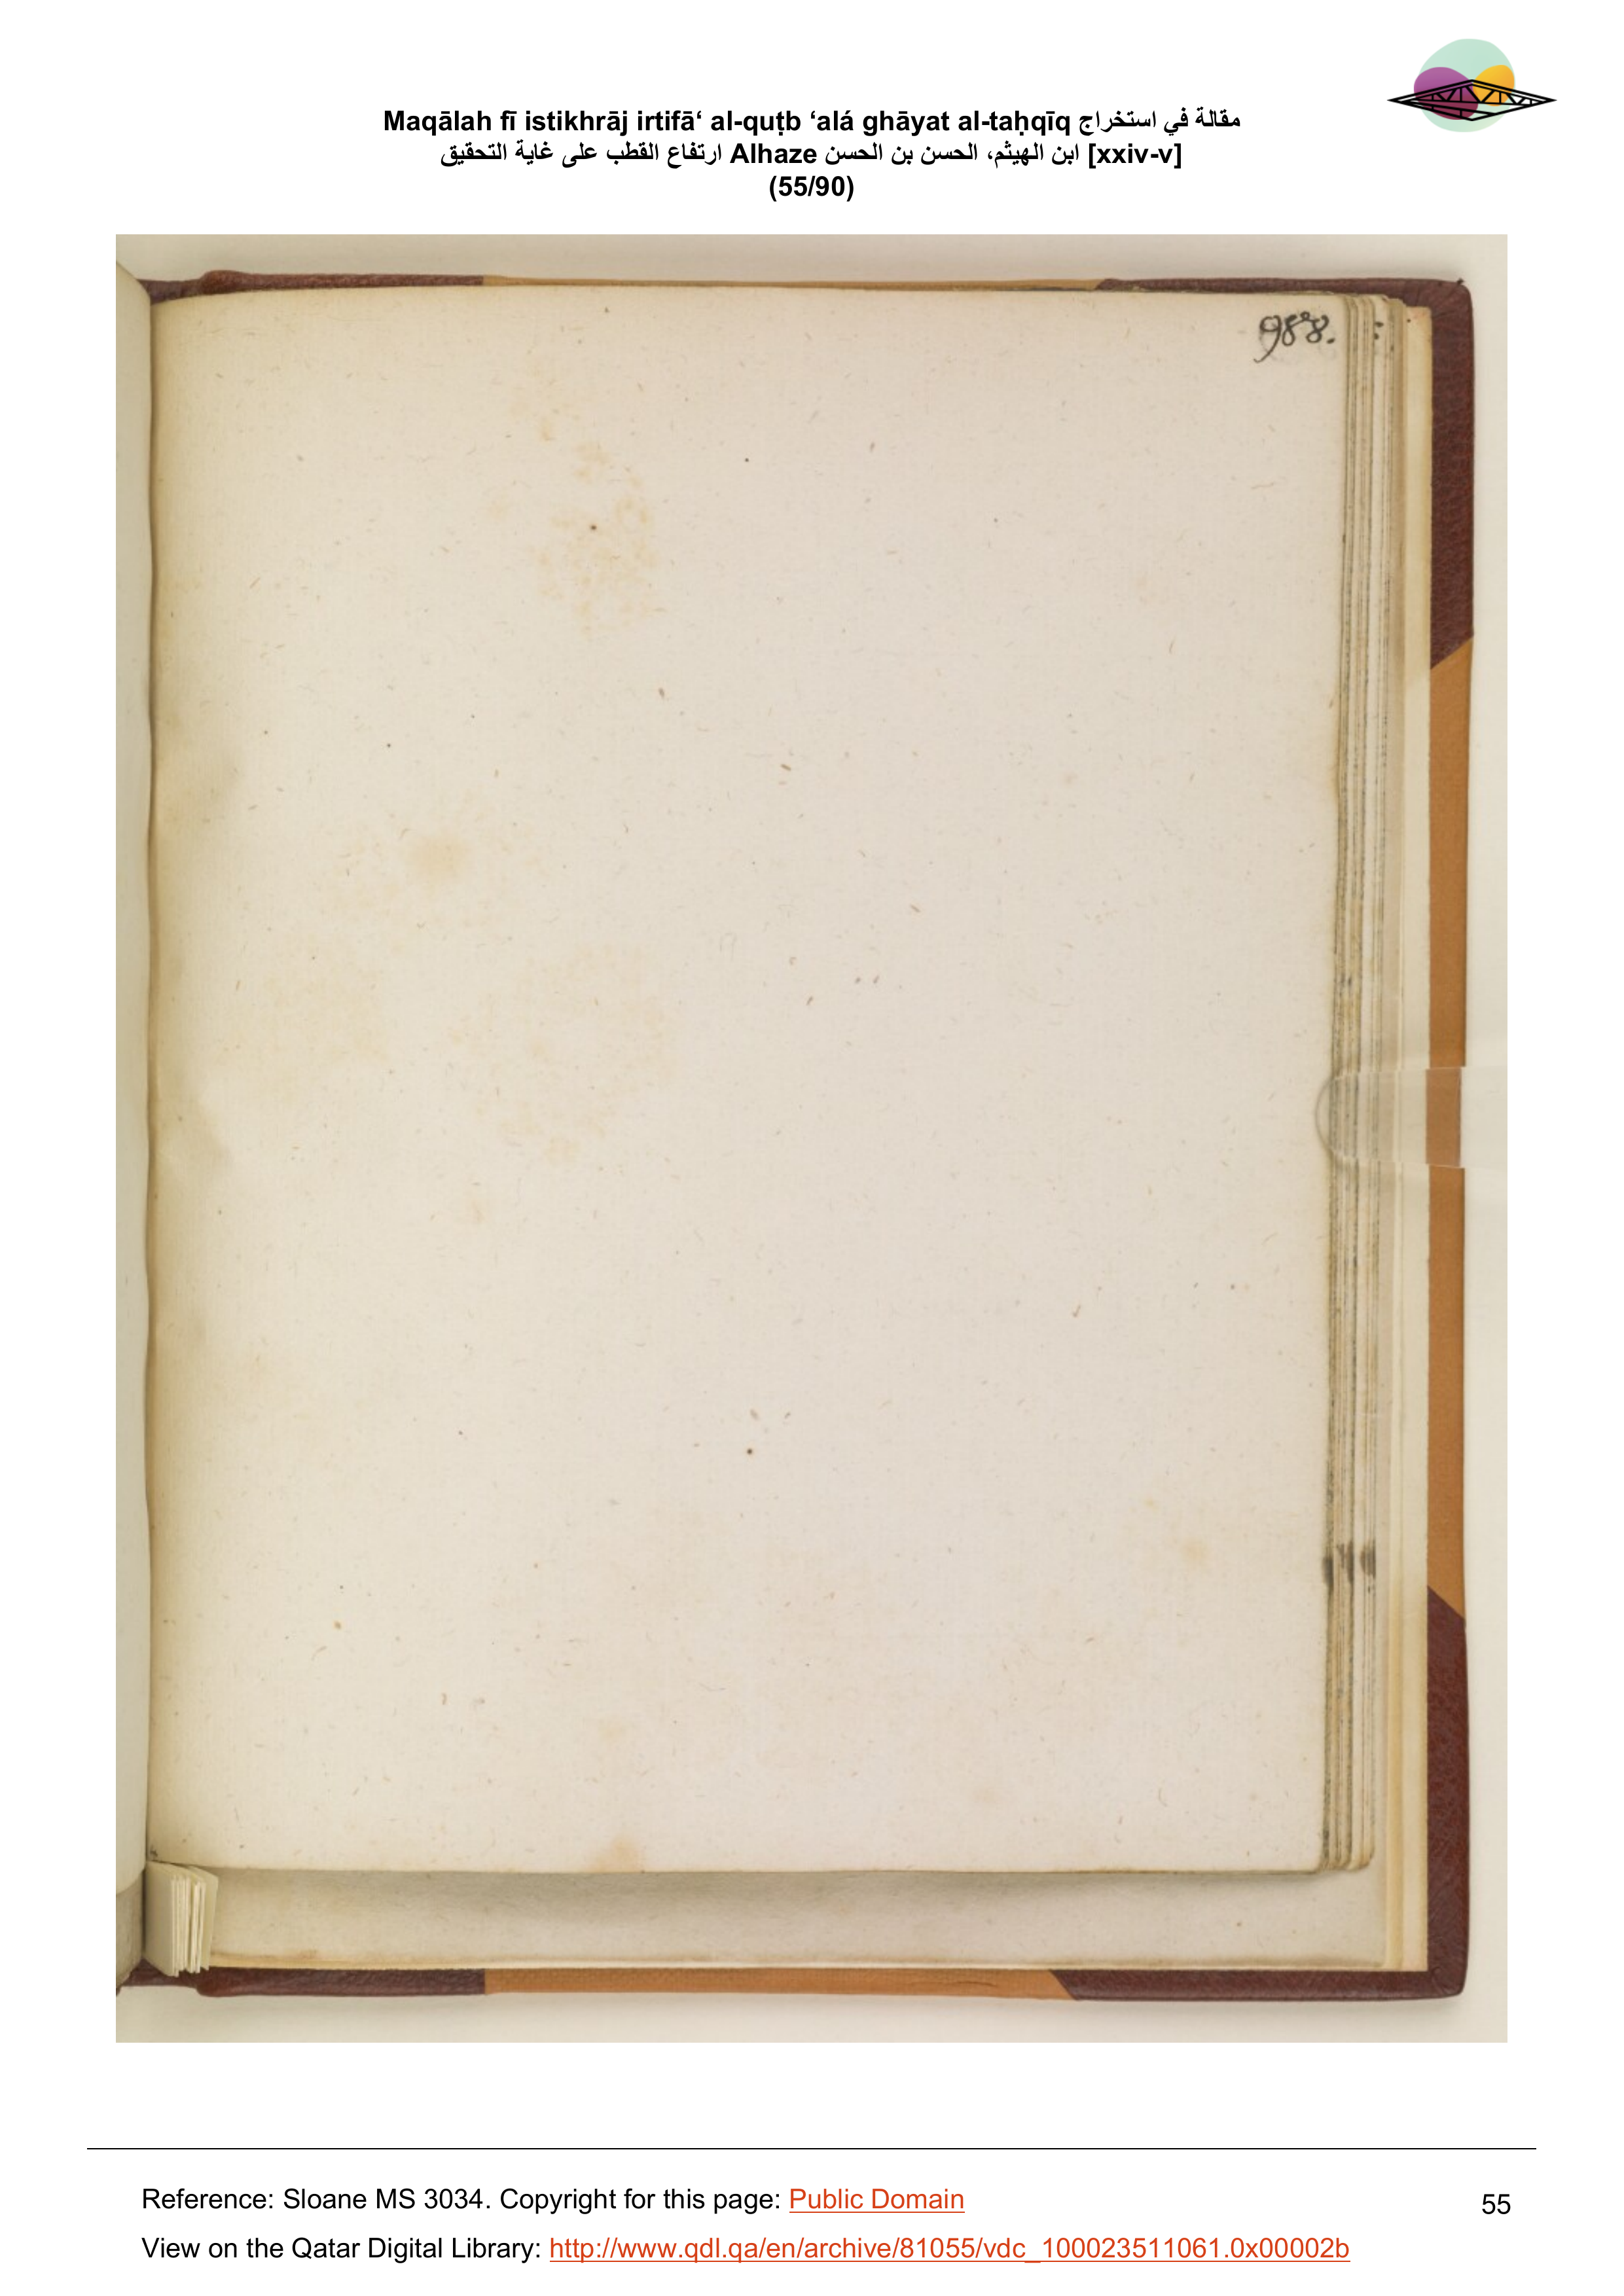 Maqālah fī istikhrāj irtifā‘ al-quṭb ‘alá ghāyat al-taḥqīq مقالة في استخراج
ارتفاع القطب على غاية التحقيق Alhaze ابن الهيثم، الحسن بن الحسن [xxiv-v]
(55/90)
988.
Reference: Sloane MS 3034. Copyright for this page: Public Domain
55
View on the Qatar Digital Library: http://www.qdl.qa/en/archive/81055/vdc_100023511061.0x00002b